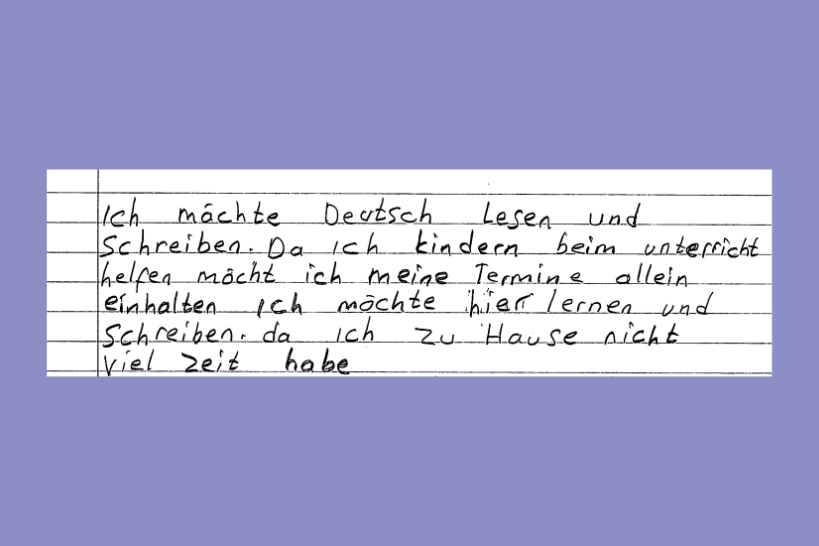 Ich möchte Deutsch Lesen und
Schreiben. Da ich kindern beim unterricht
helfen möcht ich meine Termine allein
einhalten Ich möchte hier lernen und
Schreiben. da ich zu Hause nicht
viel Zeit habe